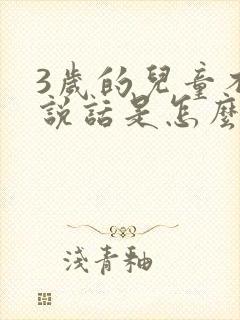 3歲的兒童不
說話是怎麼
淺青釉